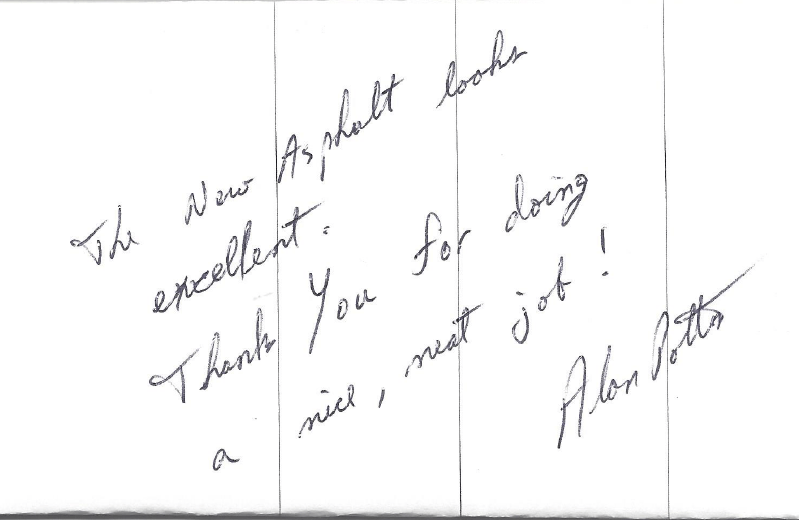 The New Asphalt looks
excellent.
Thank You for doing
a nice, neat job!
Alan Potts